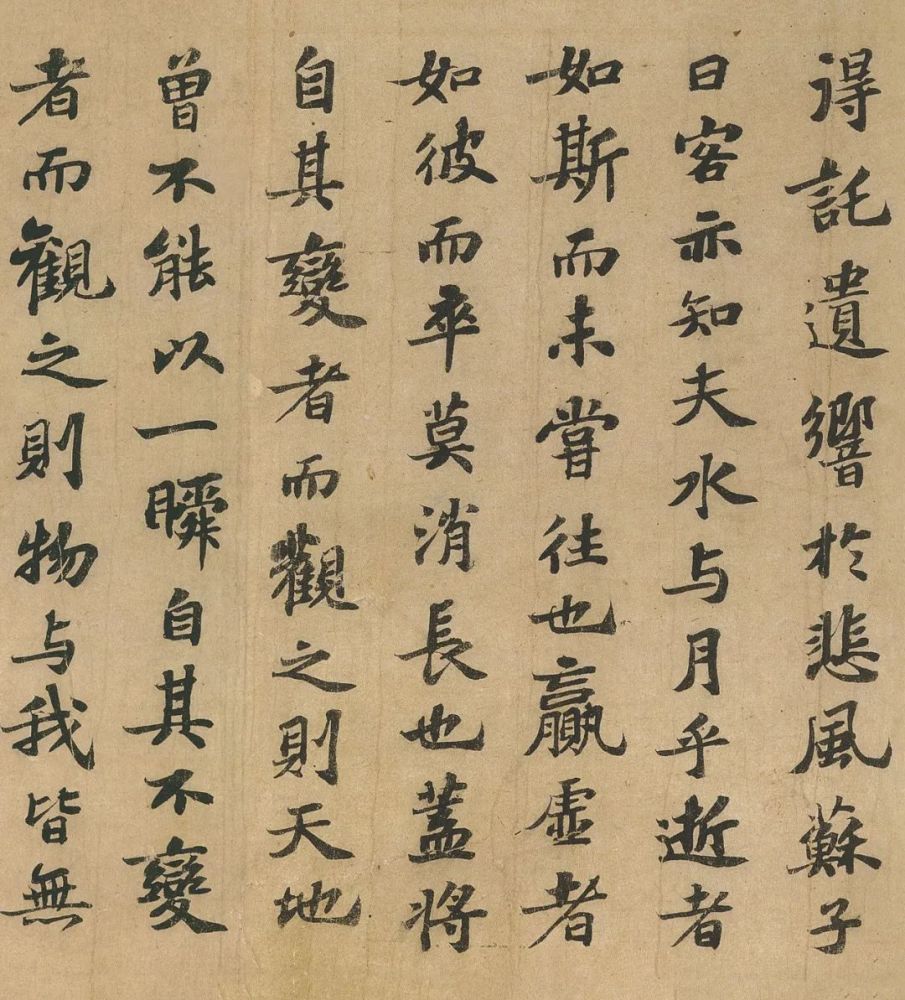 得託遺響於悲風蘇子
曰客亦知夫水与月乎逝者
如斯而未甞往也贏虛者
如彼而卒莫消長也蓋將
自其變者而觀之則天地
曾不能以一瞬自其不變
者而觀之則物与我皆無